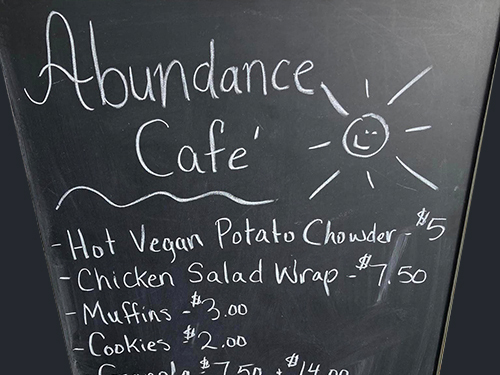 Abundance
Café
- Hot Vegan Potato Chowder - $5
- Chicken Salad Wrap - $7.50
- Muffins - $3.00
- Cookies $2.00
Granola $7.50 + $14.00